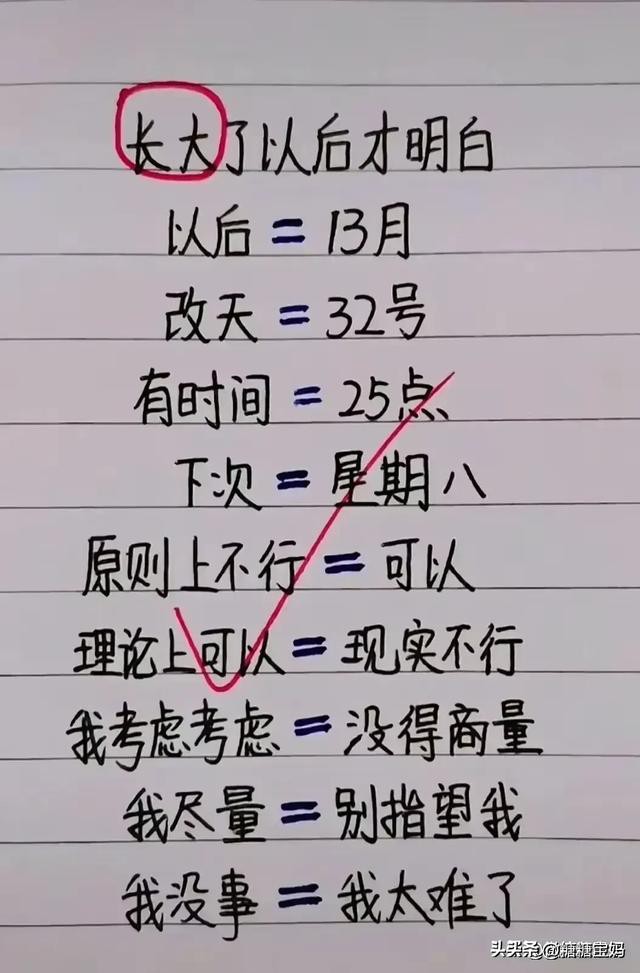 长大了以后才明白
以后 = 13月
改天 = 32号
有时间 = 25点
下次 = 星期八
原则上不行 = 可以
理论上可以 = 现实不行
我考虑考虑 = 没得商量
我尽量 = 别指望我
我没事 = 我太难了
头条 @糖糖宝妈